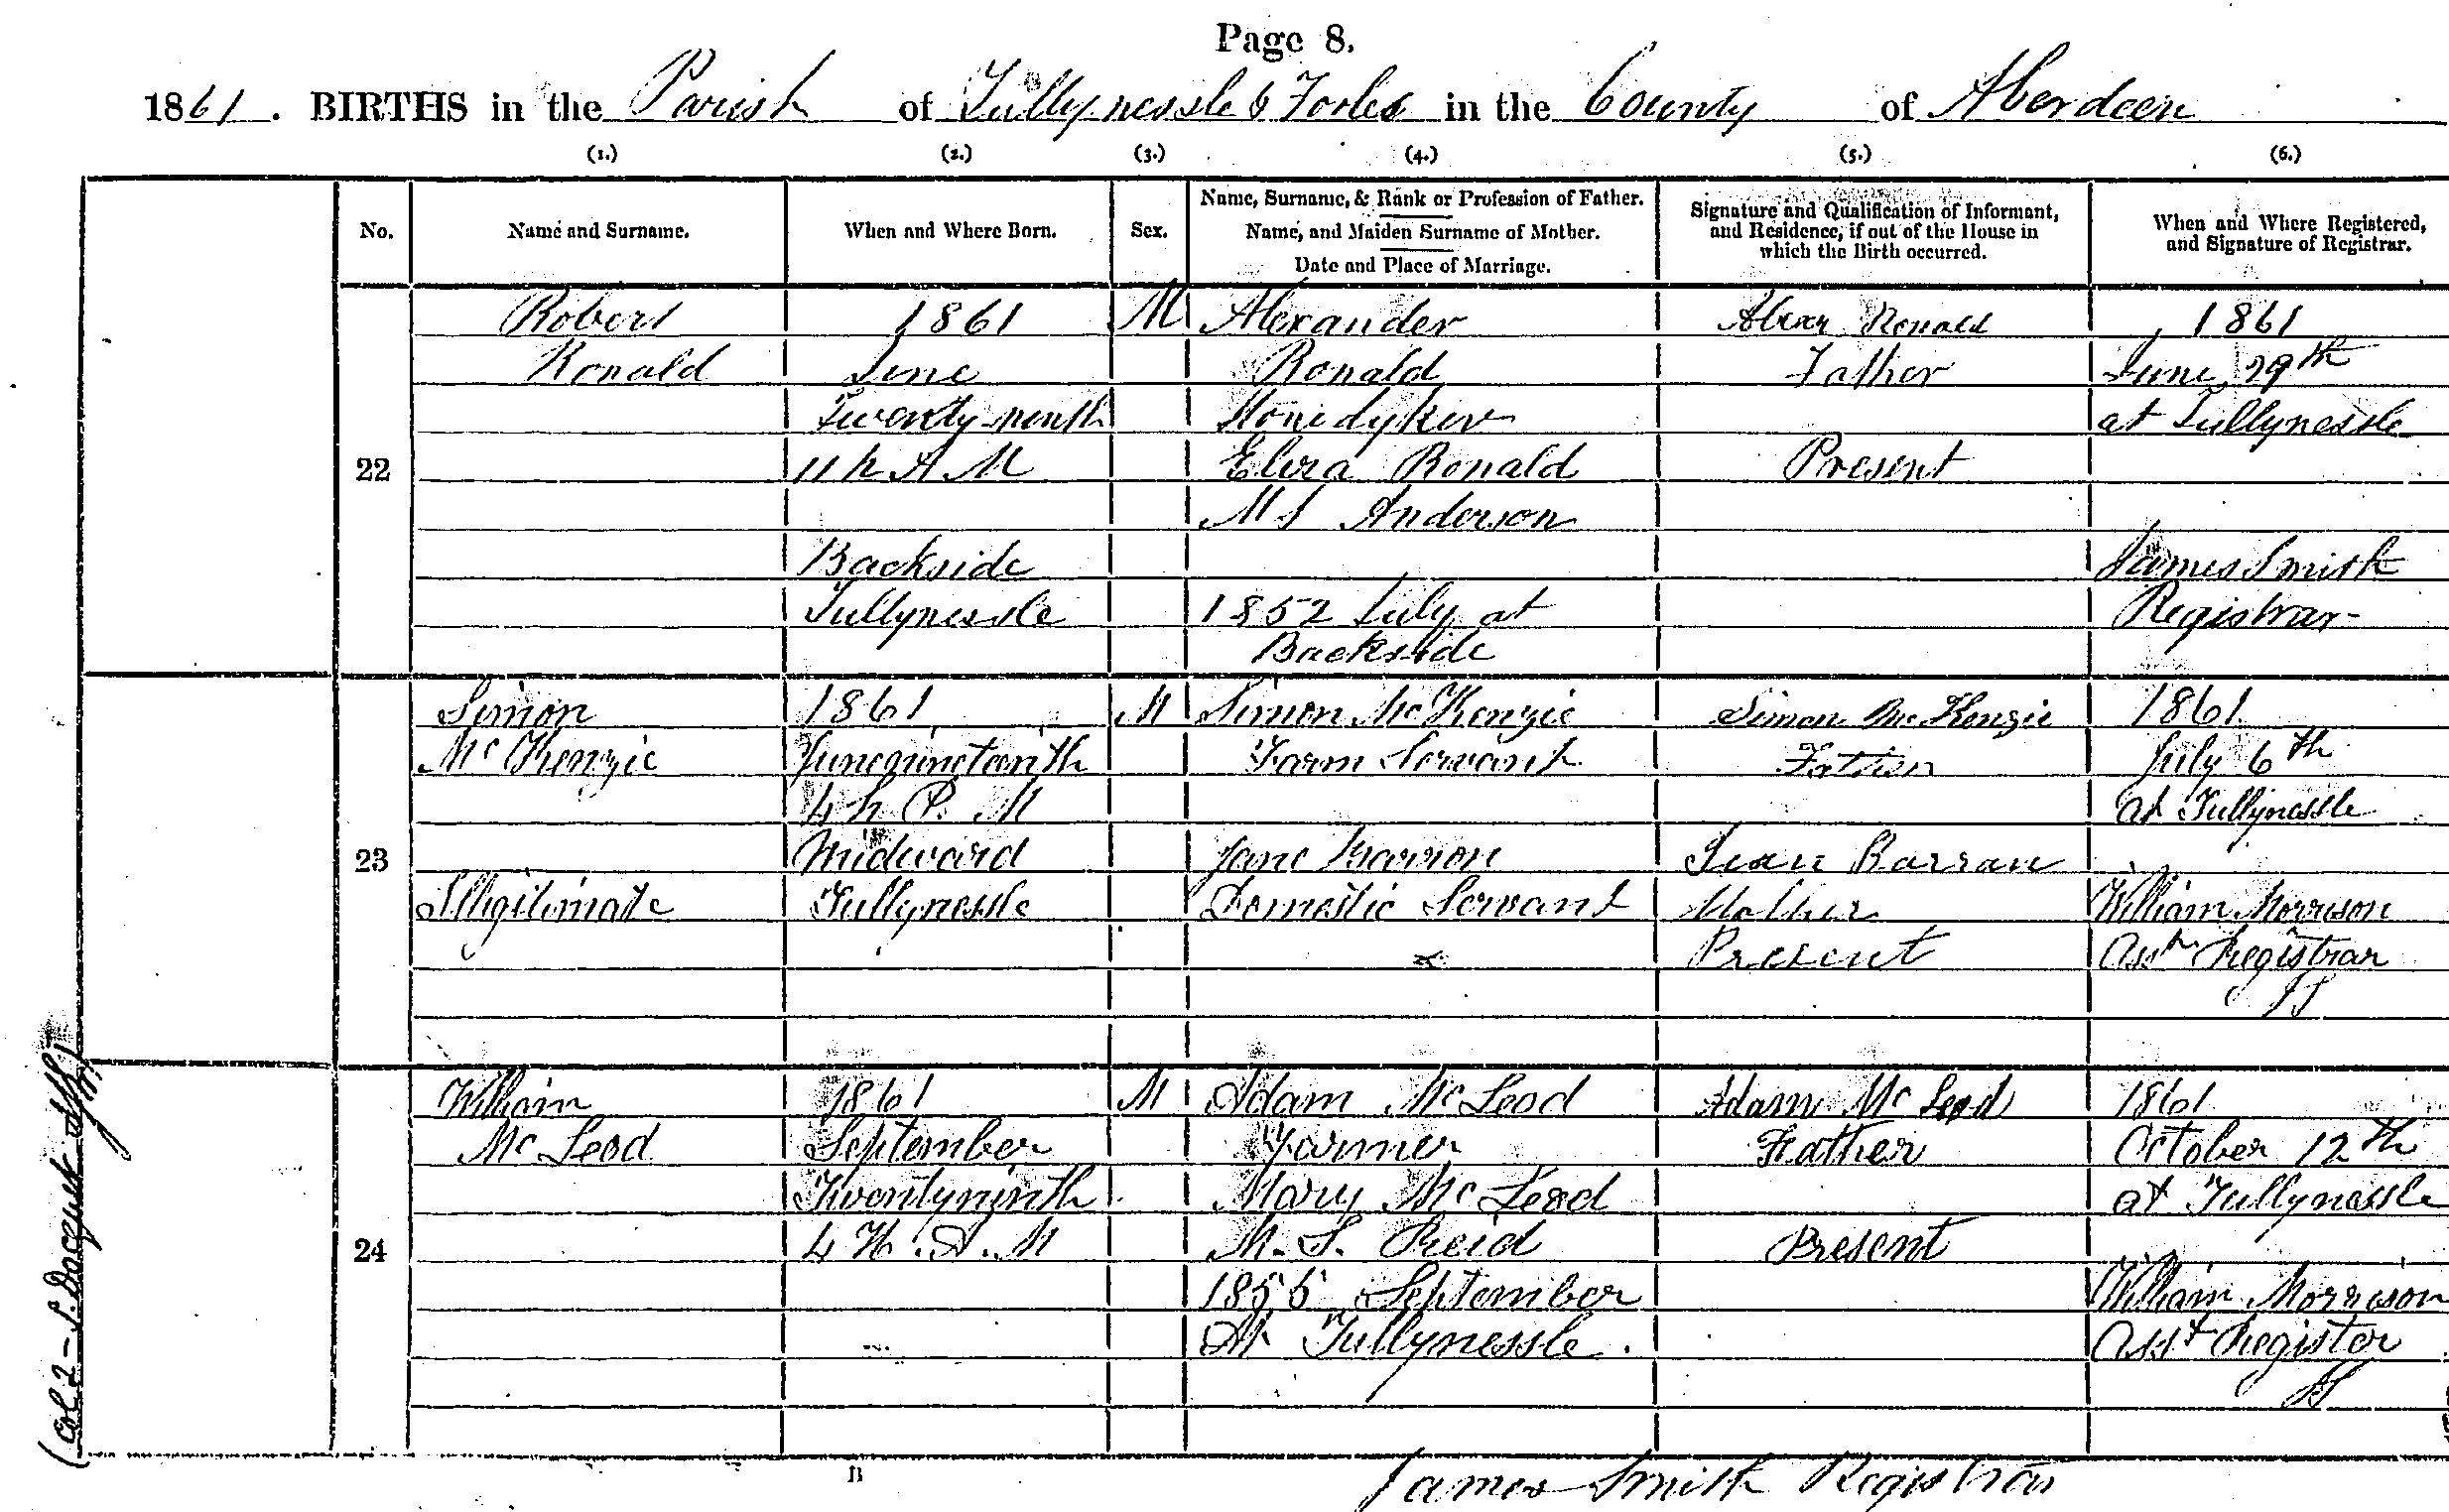 Page 8.
1861. BIRTHS in the Parish of Tullynessle & Forbes in the County of Aberdeen
(1.) (2.) (3.) (4.) (5.) (6.)
No. Name and Surname. When and Where Born. Sex. Name, Surname, & Rank or Profession of Father. Name, and Maiden Surname of Mother. Date and Place of Marriage. Signature and Qualification of Informant, and Residence, if out of the House in which the Birth occurred. When and Where Registered, and Signature of Registrar.
22
Robert
Ronald
1861
June
Twenty ninth
11 h A M
Backside
Tullynessle
M
Alexander
Ronald
Stonedyker
Ronald
M S Anderson
1852 July at
Backside
Alexr Ronald
Father
Present
1861
June 29th
at Tullynessle
James Smith
Registrar
23
Simon
McKenzie
Illegitimate
1861
June nineteenth
4 h P. M
Midward
Tullynessle
M
Simon McKenzie
Farm Servant
Jane Barron
Domestic Servant
x
Simon McKenzie
Father
Barran
Mother
Present
1861
July 6th
at Tullynessle
William Morrison
Asst Registrar
JS
24
William
McLeod
1861
September
Twentyninth
4 H. A. M
M
Adam McLeod
Farmer
Mary McLeod
M. S. Reid
1855 September
At Tullynessle.
Adam McLeod
Father
Present
1861
October 12th
at Tullynessle
William Morrison
Asst Register
JS
(Col 2 -
B
James Smith Registrar